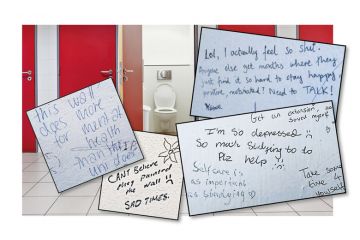 Lol, I actually feel so shit.
Anyone else get months where they
just find it so hard to stay happy,
motivated? Need to TALK!
this wall
does more
for mental
health
than this
uni does
CANT Believe
they painted
the wall !!
SAD TIMES.
Got an extension, so
saved myself
I'm so depressed
So much studying to do
Plz help
Self care is
as important
as studying
Take some
time 4
yourself